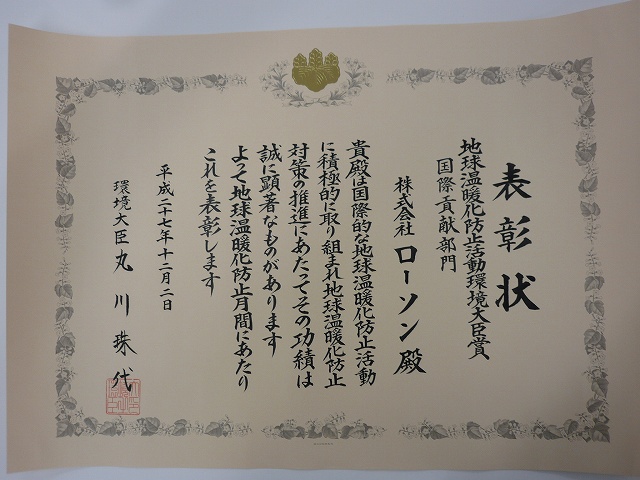 表彰状
地球温暖化防止活動環境大臣賞
国際貢献部門
株式会社ローソン殿
貴殿は国際的な地球温暖化防止活動
に積極的に取り組まれ地球温暖化防止
対策の推進にあたってその功績は
誠に顕著なものがあります
よって地球温暖化防止月間にあたり
これを表彰します
平成二十七年十二月二日
環境大臣丸川珠代